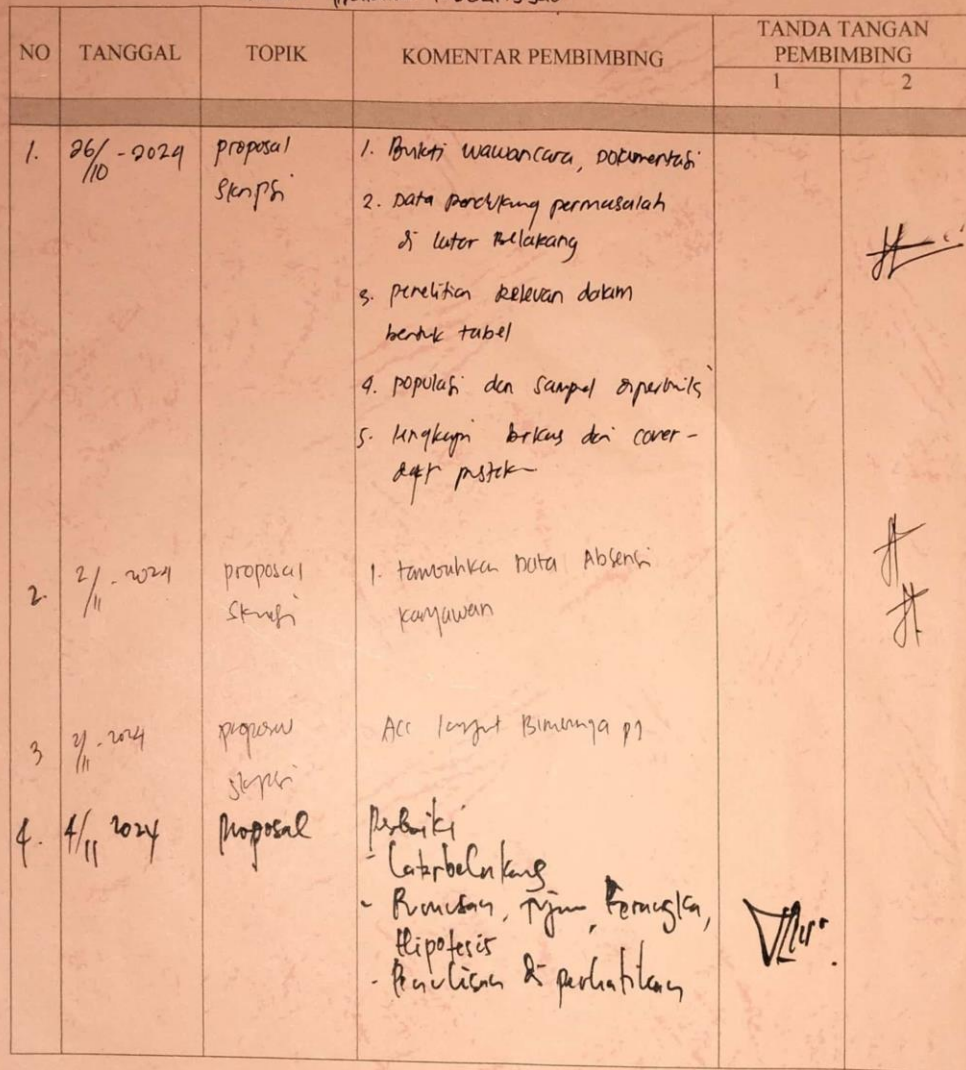 NO TANGGAL TOPIK KOMENTAR PEMBIMBING TANDA TANGAN PEMBIMBING
1 2
1. 26/10 - 2024 proposal skripsi
1. Bukti wawancara, Dokumentasi
2. Data pendukung permasalah
di latar Belakang
3. penelitian Relevan dalam
bentuk tabel
4. populasi dan sampel diperbaiki
5. lengkapi berkas dari cover -
daftar pustaka
2. 2/11 - 2024 proposal skripsi
1. tambahkan Data Absensi
karyawan
3 2/11 - 2024 proposal skripsi
Acc lanjut
4. 4/11 2024 proposal
Perbaiki
- Latarbelakang
- Rumusan, Tujuan, Kerangka,
Hipotesis
- Penulisan di perhatikan